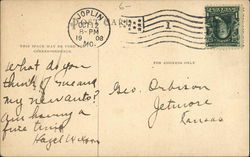 6-
JOPLIN
OCT 12
8-PM
19 08
MO.
POST CARD
1
THIS SPACE MAY BE USED FOR
CORRESPONDENCE
FOR ADDRESS ONLY
What do you
think of me and
my new auto?
Am having a
fine time
Hazel
Geo. Orbison
Jetmore
Kansas